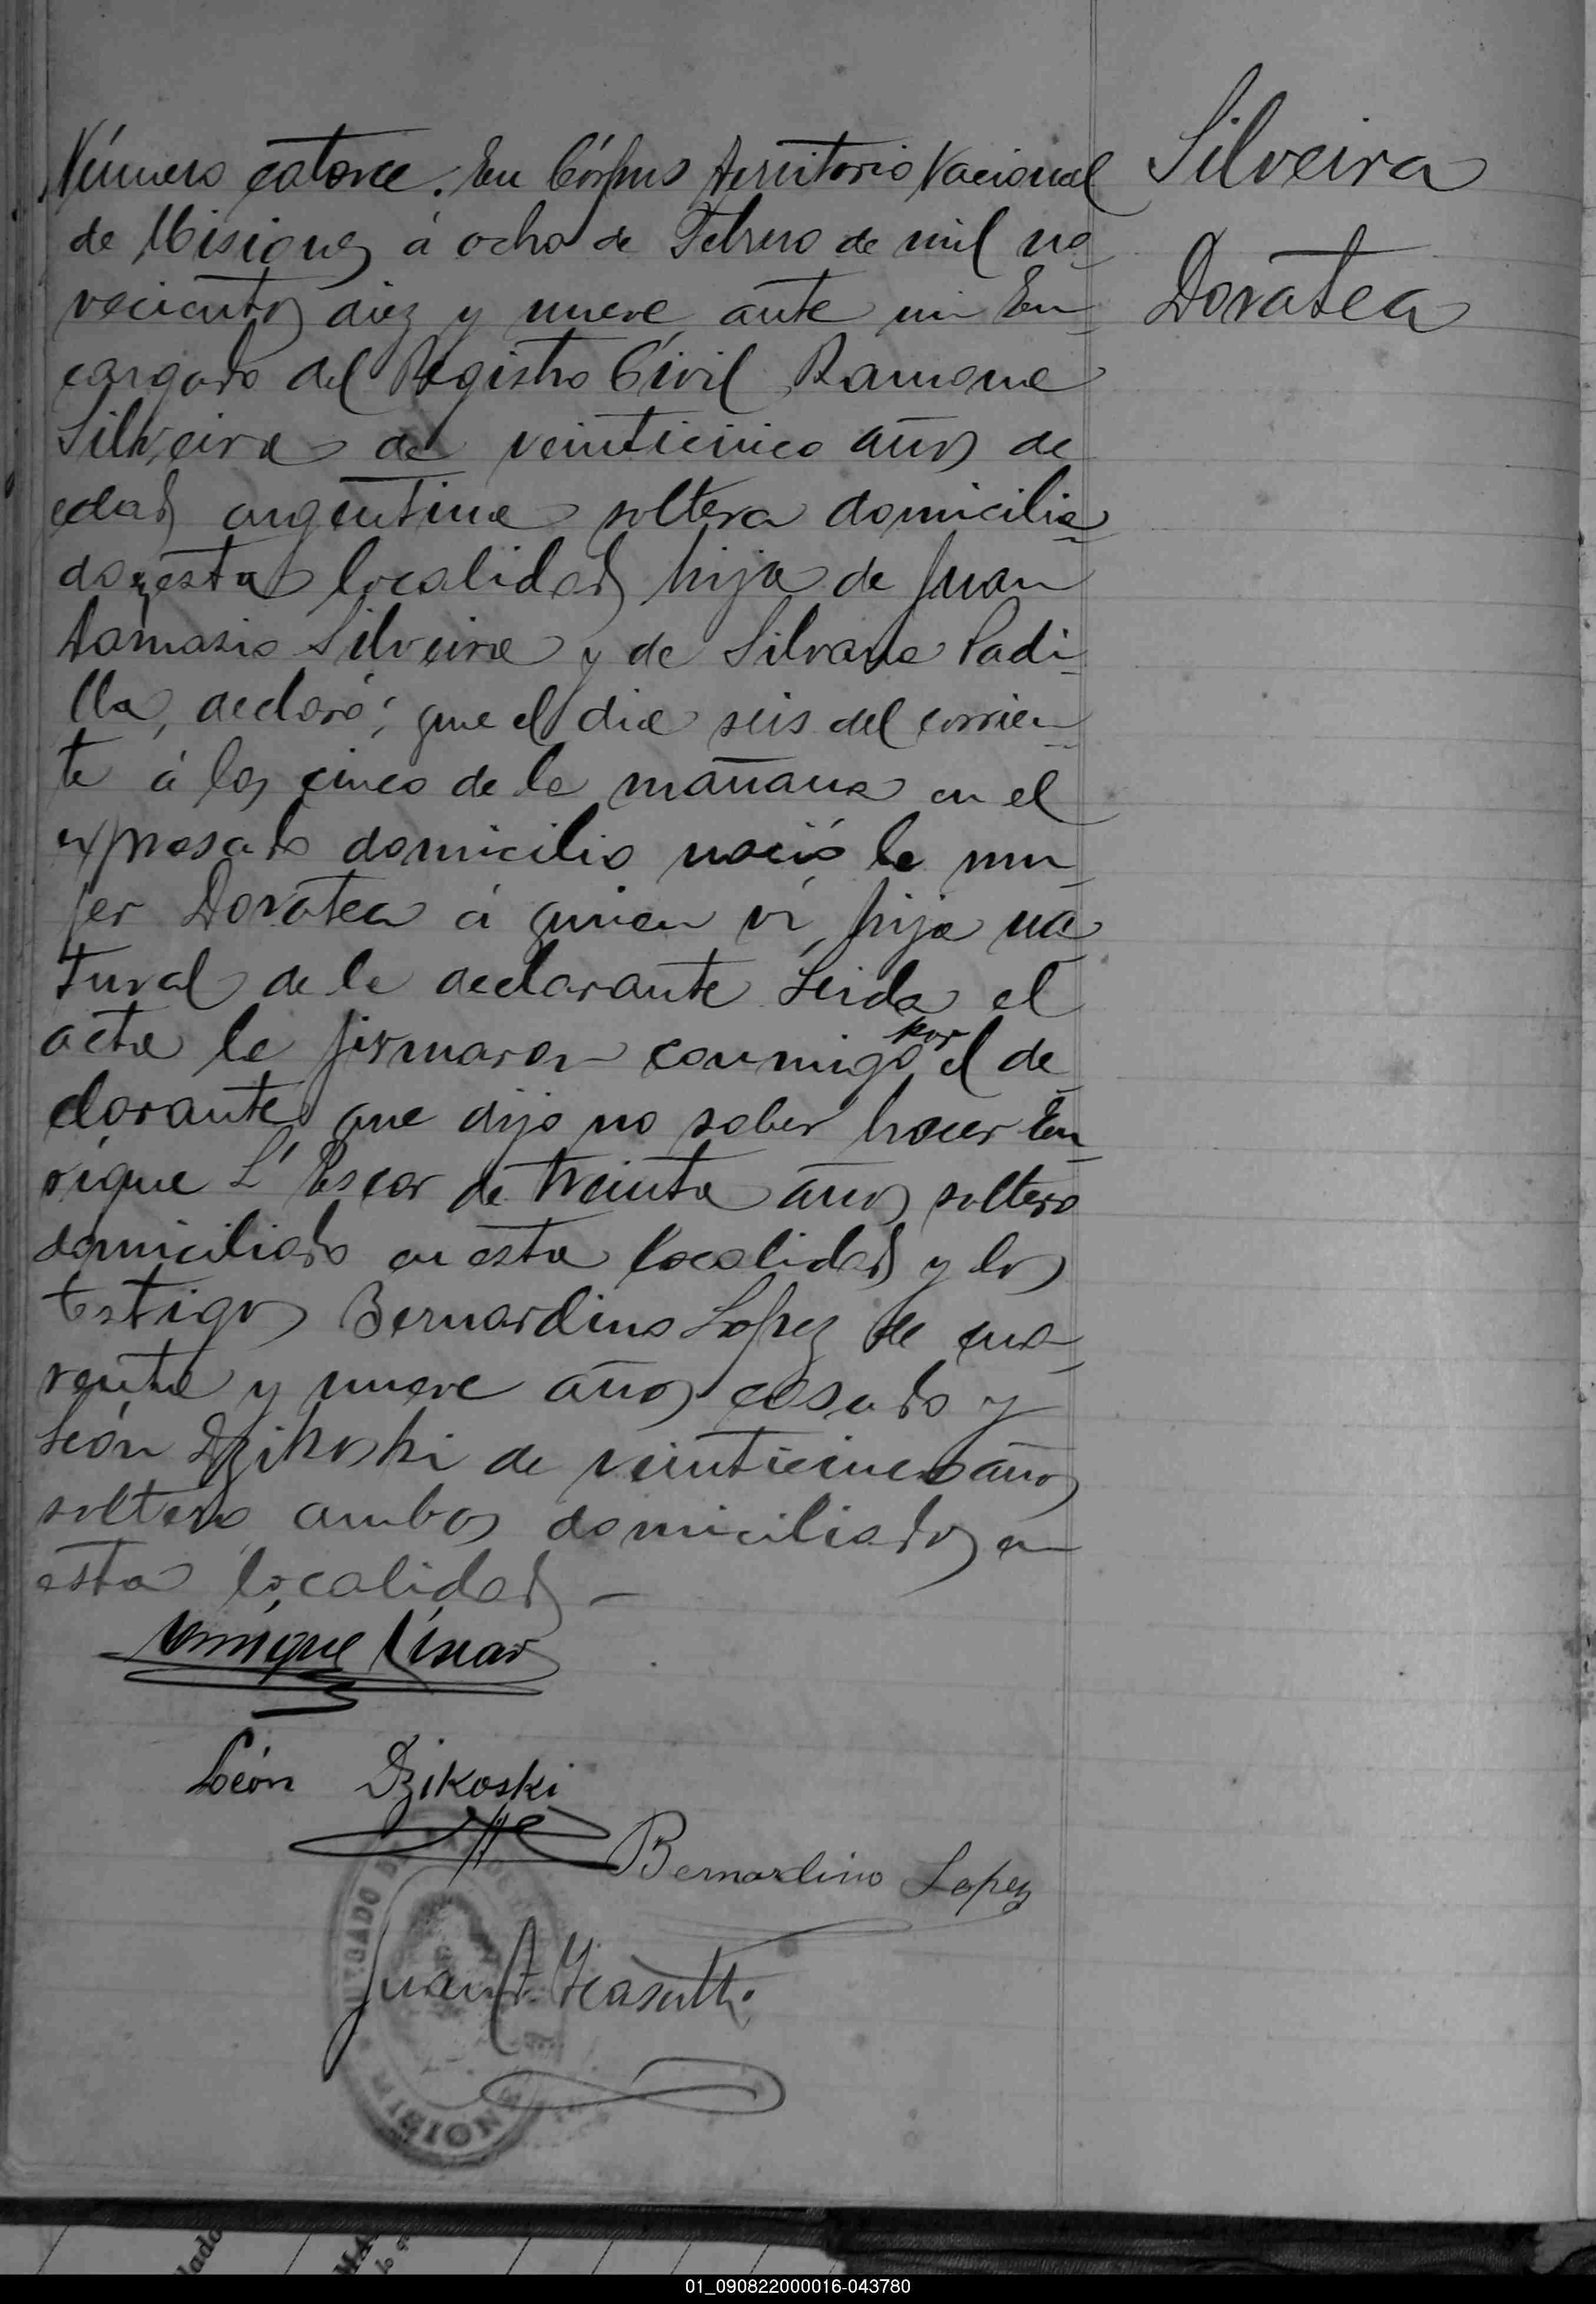 Silveira
Doratea
Número catorce. En Córpus territorio Nacional
de Misiones á ocho de Febrero de mil no-
vecientos diez y nueve ante mi En-
cargado del Registro Civil Ramona
Silveira de veinticinco años de
edad argentina soltera domicilia-
da en esta localidad hija de Juan
Damasio Silveira y de Silvana Padi-
lla, declaró; que el dia seis del corrien-
te á las cinco de la mañana en el
expresado domicilio nació la mu-
jer Doratea á quien ví, hija na-
tural de la declarante Leida el
acta la firmaron conmigo por el de-
clarante que dijo no saber hacer En-
rique de treinta años soltero
domiciliado en esta localidad y los
testigos Bernardino Lopez de cua-
renta y nueve años casado y
León Dzikoski de veinticinco años
soltero ambos domiciliados en
esta localidad -
Enrique
León Dzikoski
Bernardino Lopez
Juan
JUZGADO DE
MISIONES
01_090822000016-043780